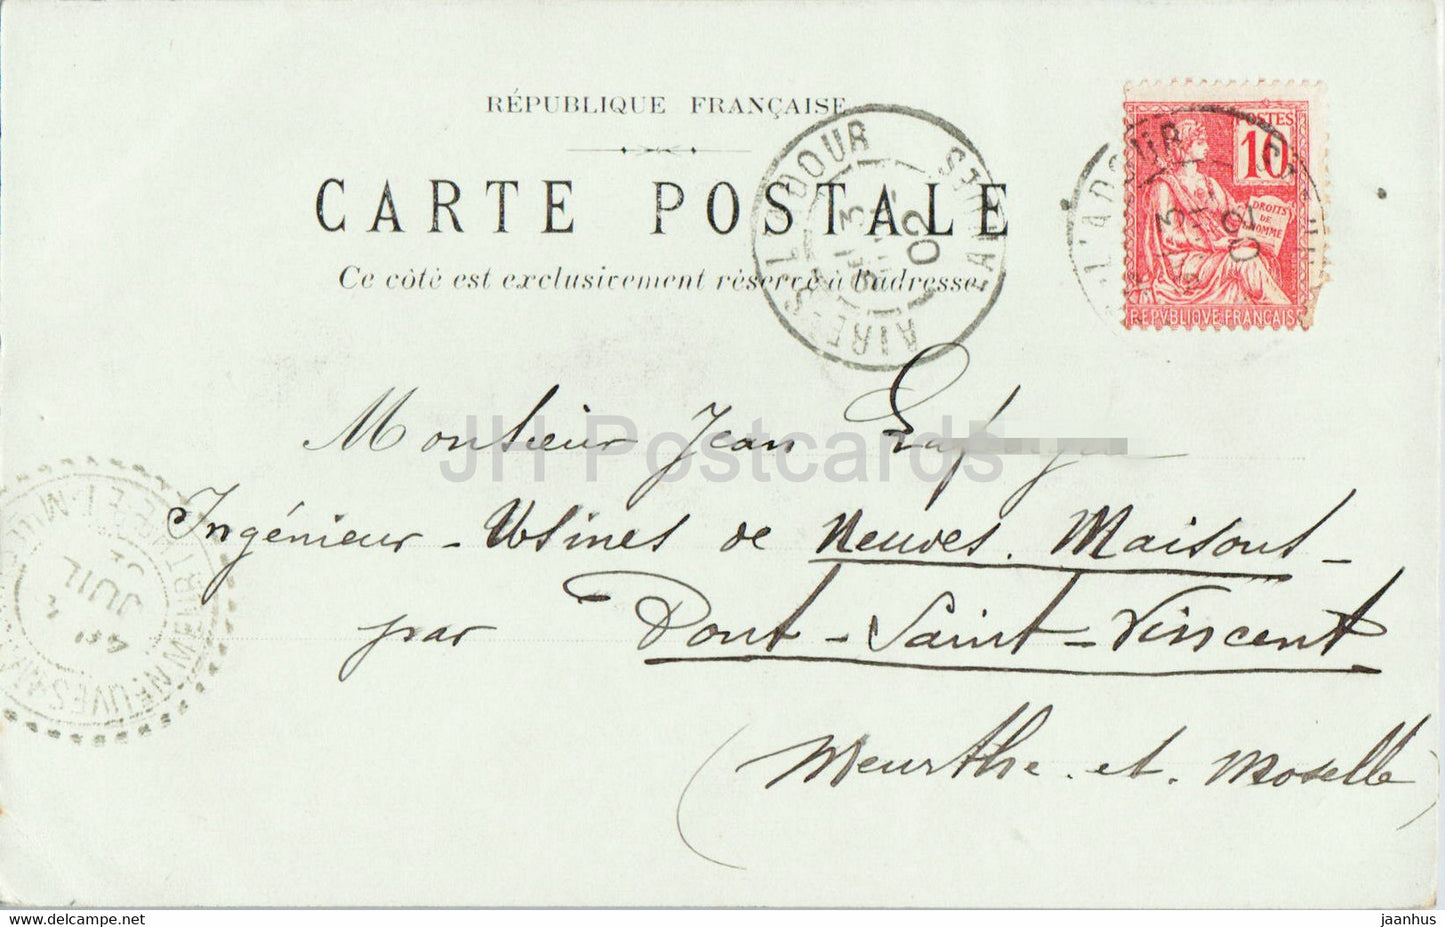 RÉPUBLIQUE FRANÇAISE
CARTE POSTALE
Ce côté est exclusivement réservé à l'adresse
AIRE-S-L'ADOUR
3
02
POSTES
10
DROITS DE HOMME
REPVBLIQVE FRANÇAISE
L'ADOUR
3
02
Monsieur Jean
JH Postcards
Ingénieur - Usines de Neuves. Maisons -
par Pont - Saint - Vincent
(Meurthe. et. Moselle)
NEUVES-M
MEURTHE-ET-M
JUIL
jaanhus